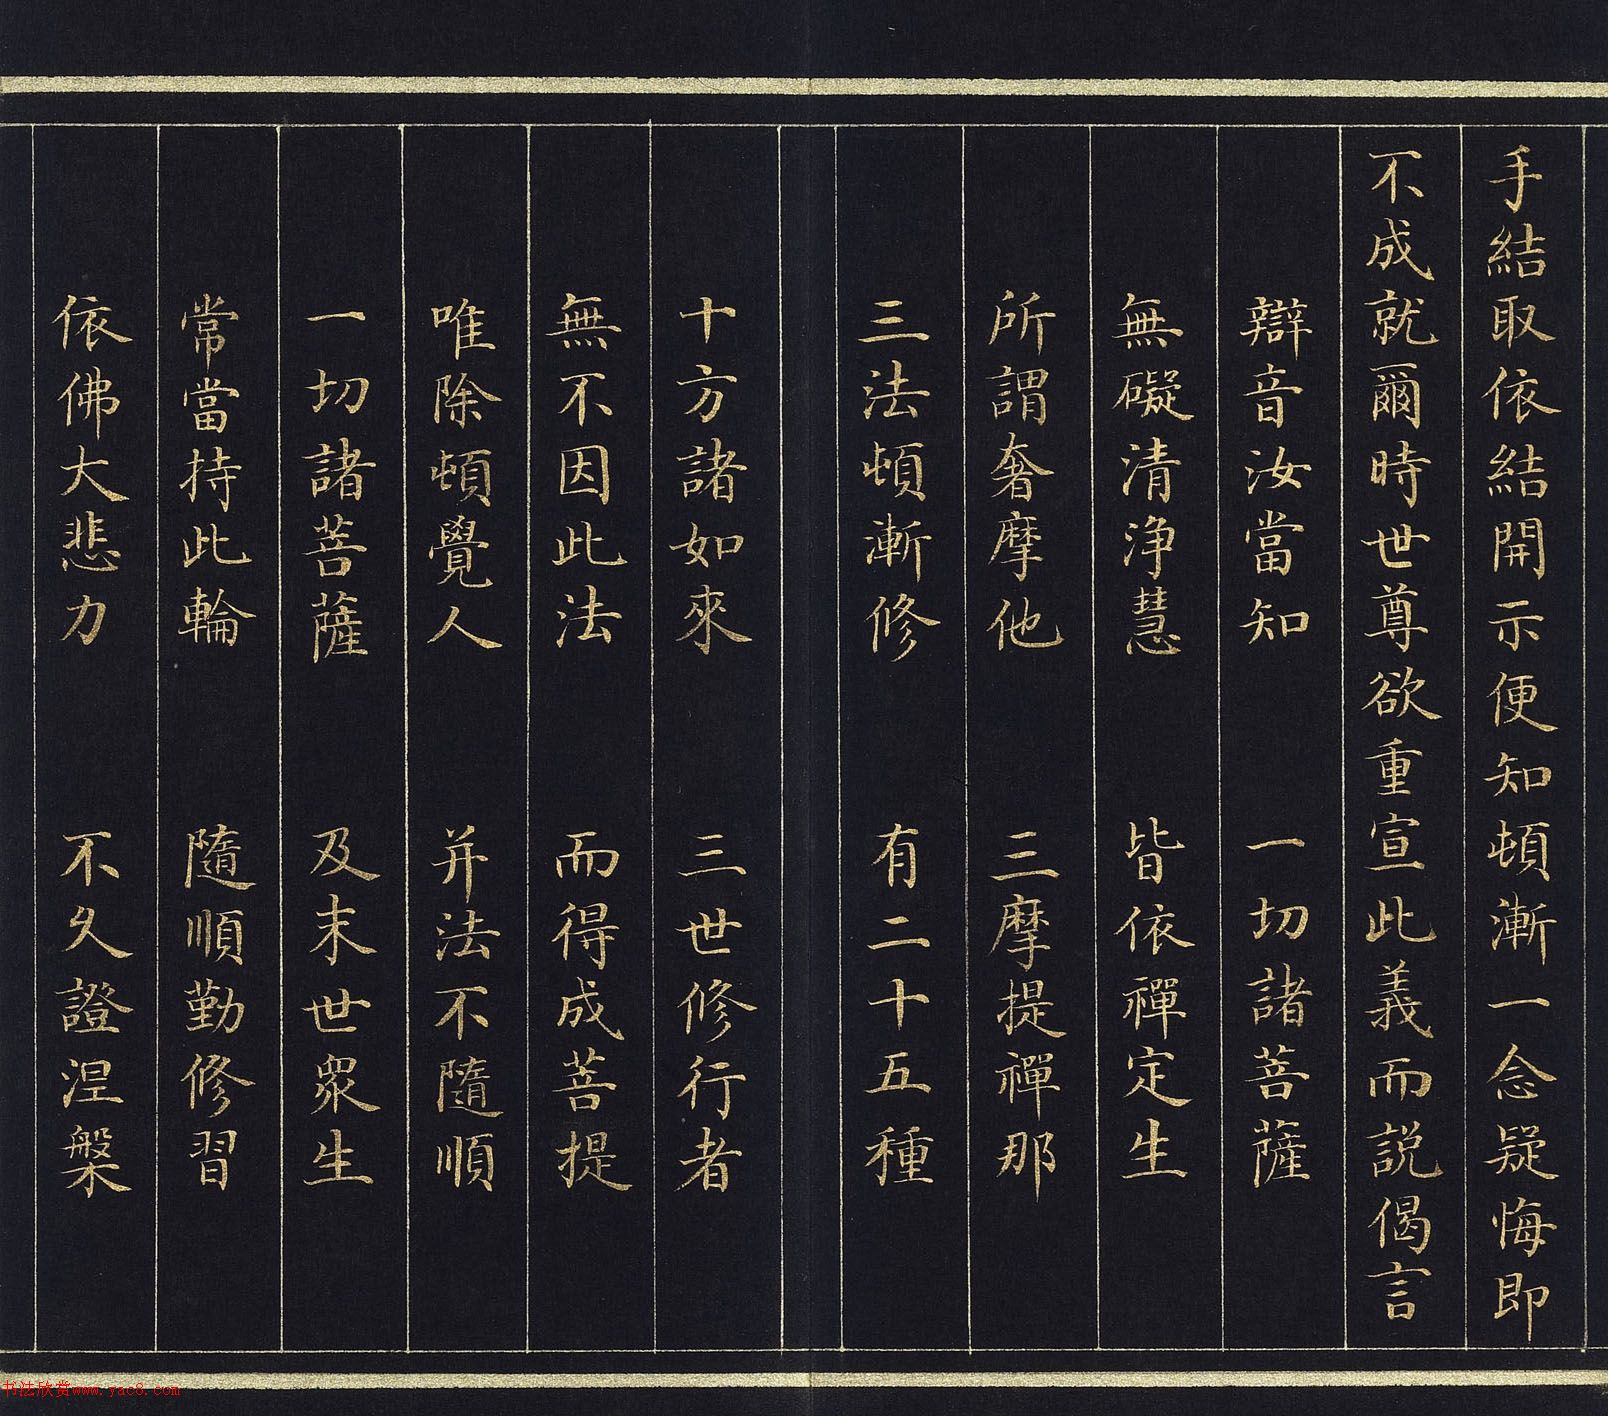 手結取依結開示便知頓漸一念疑悔即
不成就爾時世尊欲重宣此義而説偈言
辯音汝當知 一切諸菩薩
無礙清淨慧 皆依禪定生
所謂奢摩他 三摩提禪那
三法頓漸修 有二十五種
十方諸如來 三世修行者
無不因此法 而得成菩提
唯除頓覺人 并法不隨順
一切諸菩薩 及末世眾生
常當持此輪 隨順勤修習
依佛大悲力 不久證涅槃
书法欣赏www.yac8.com